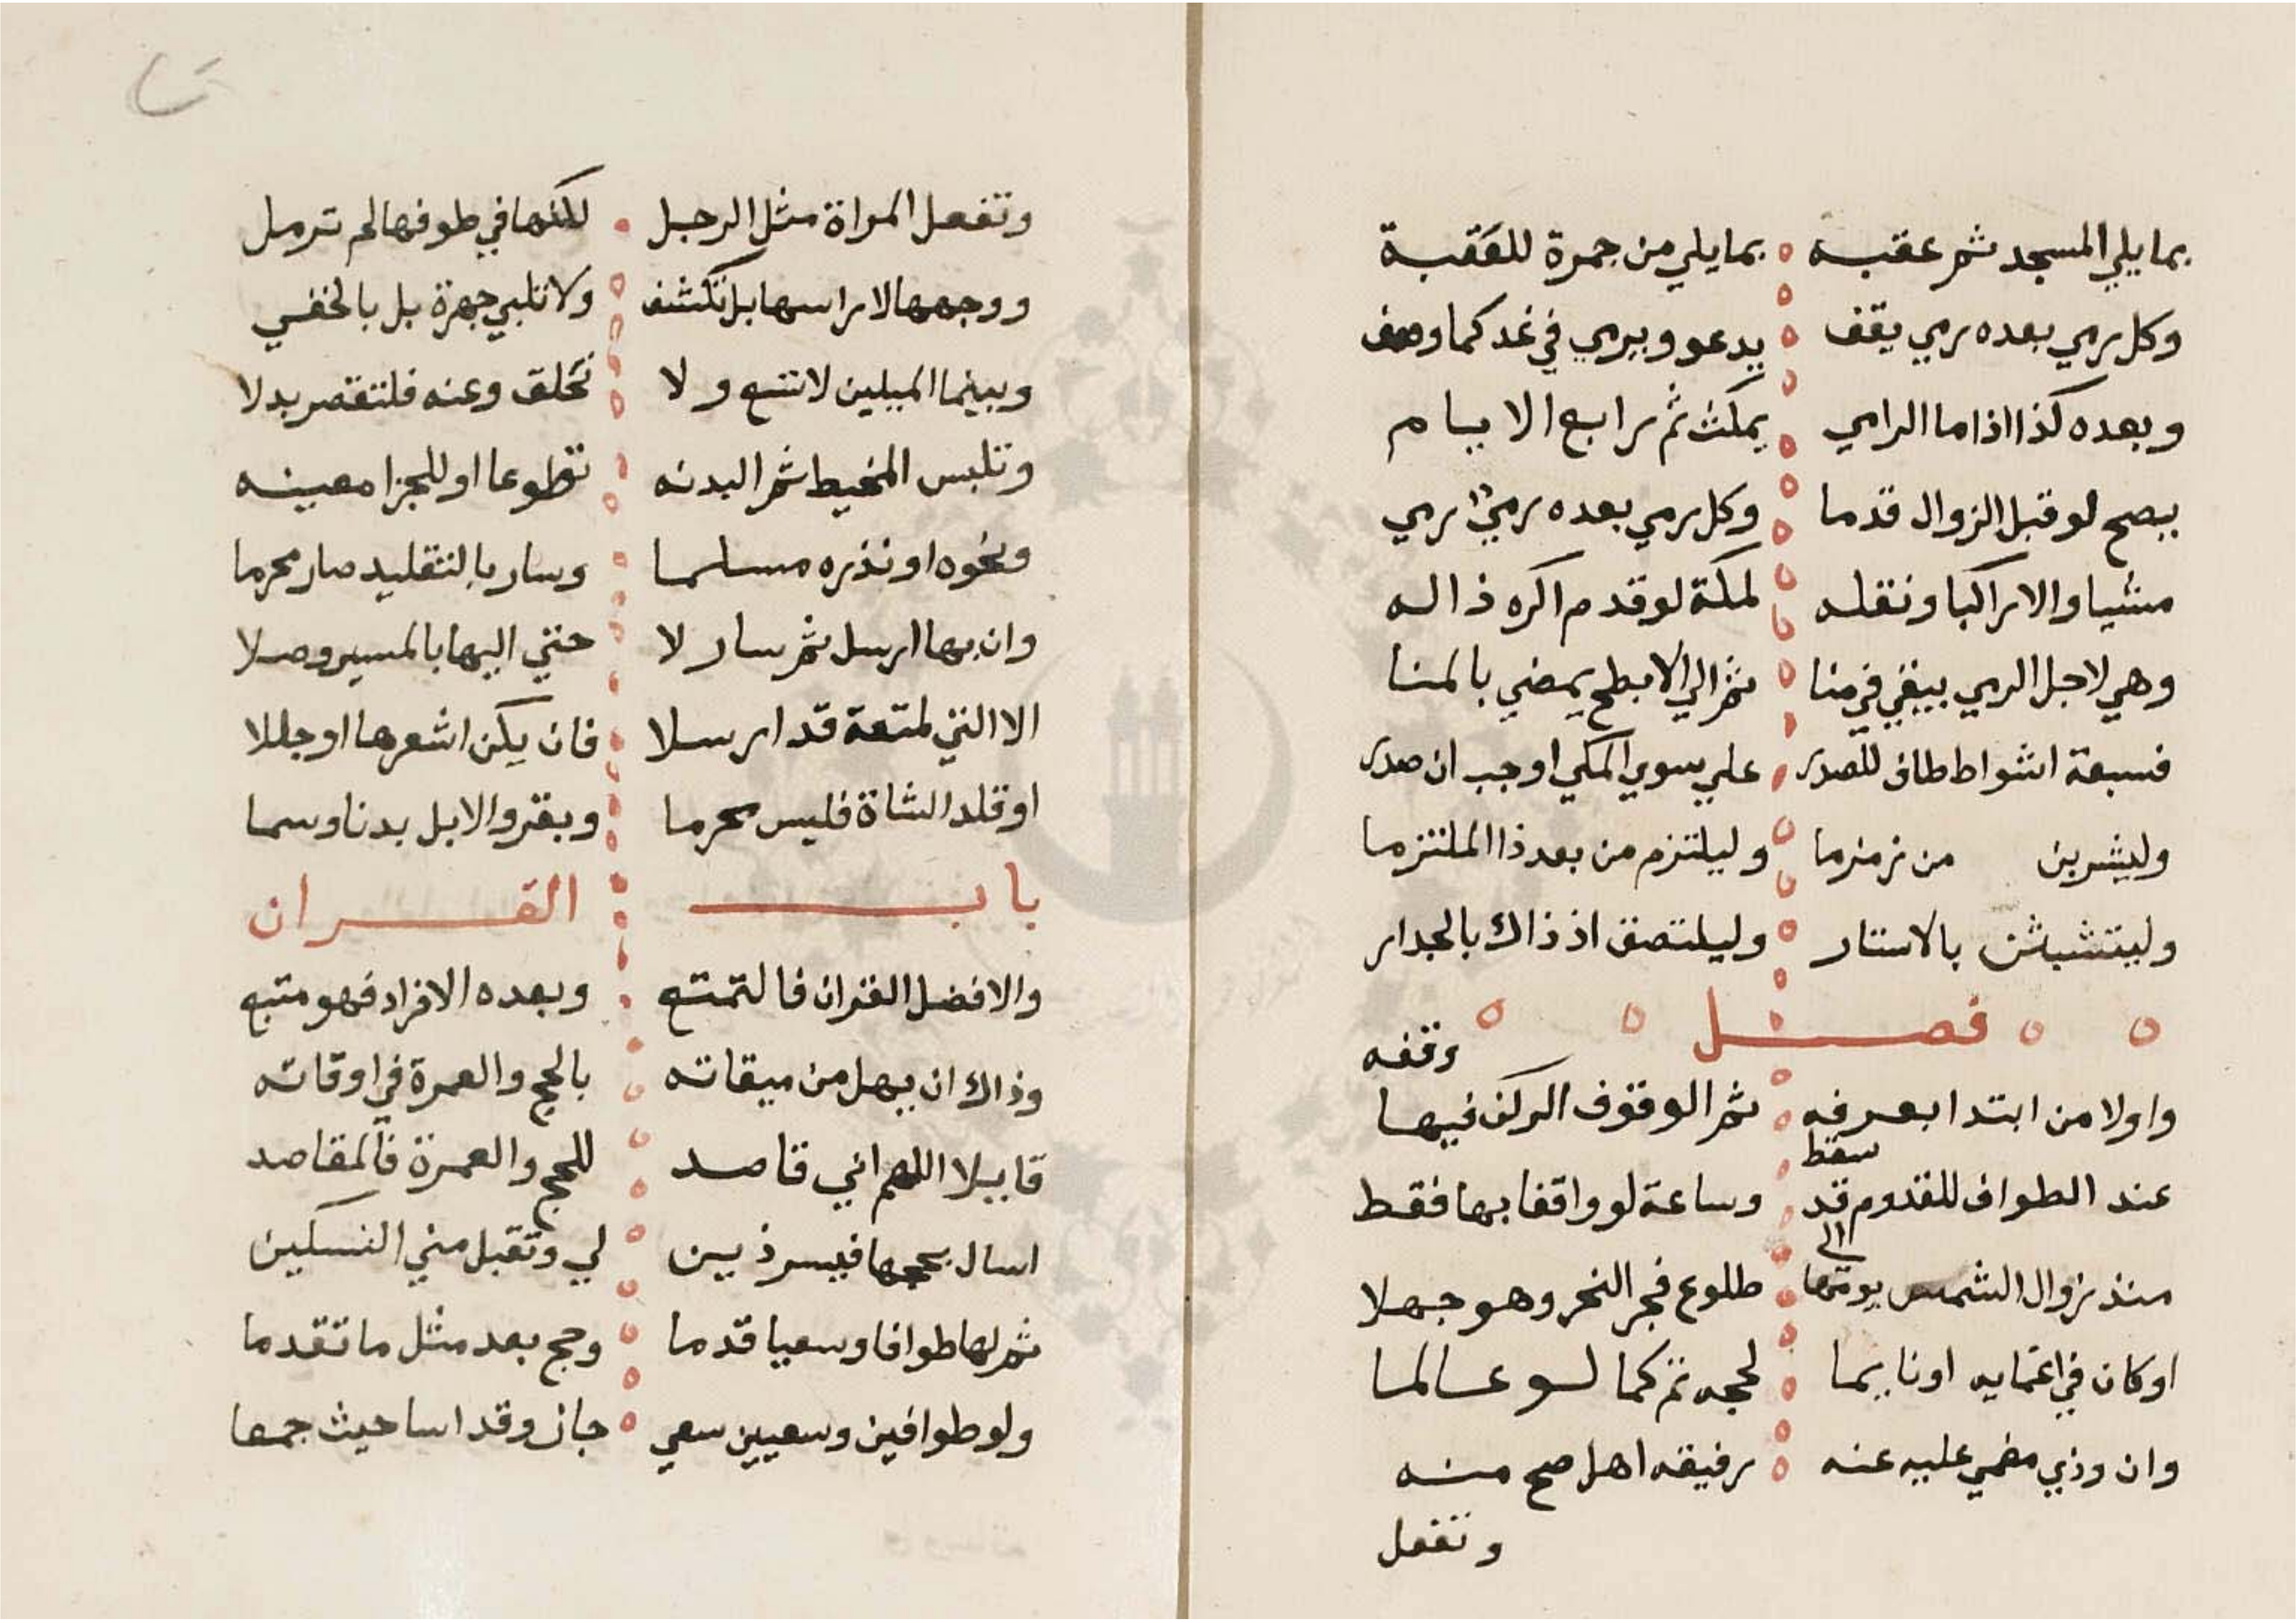 بمايلي المسجد ثم عقبه بمايلي من جمرة للعَقبة
وكل رمي بعده رمي يقف يدعو ويرمي في غد كما وصف
وبعده كذا اذا ما الرامي يمكث ثم رابع الايام
يصح لو قبل الزوال قدما وكل رمي بعده رمي رمي
مشيا والا راكبا ونقله لمكة لو قدم اكره ذاله
وهي لاجل الرمي يبغي في منا ثم الي الابطح يمضي بالمنا
فسبعة اشواط طاف للصدر علي سوي المكي اوجب ان صدر
وليشربن من زمزما وليلتزم من بعد ذا الملتزما
وليتشبثن بالاستار وليلتصق اذ ذاك بالجدار
فصل
وقفه
واولا من ابتدا بعرفه ثم الوقوف الركن فيها
سقط
عند الطواف للقدوم قد وساعة لو واقفا بها فقط
الي
منذ زوال الشمس يومها طلوع فجر النحر وهو جهلا
او كان في اغمايه او نايما لحجه تم كما لو عالما
وان وذي مغمي عليه عنه رفيقه اهل صح منه
وتفعل
وتفعل المراة مثل الرجل لكنها في طوفها لم ترمل
ووجهها لا راسها بل تكشف ولا تلبي جهرة بل بالخفي
وبينما الميلين لا تسع ولا تحلق وعنه فلتقصر بدلا
وتلبس المخيط ثم البدنه تطوعا او للجزا معينه
ونحوه او نذره مسلما وسار بالتقليد صار محرما
وان بها ارسل ثم سار لا حتي اليها بالمسير وصلا
الا التي لمتعة قد ارسلا فان يكن اشعرها او جللا
او قلد الشاة فليس محرما وبقر والابل بدنا وسما
باب القران
والافضل القران فالتمتع وبعده الافراد فهو متبع
وذاك ان يهل من ميقاته بالحج والعمرة في اوقاته
قايلا اللهم اني قاصد للحج والعمرة فالمقاصد
اسال بحجها فيسر ذين لي وتقبل مني النسكين
ثم لها طوافا وسعيا قدما وحج بعد مثل ما تقدما
ولو طوافين وسعيين سعي جاز وقد اسا حيث جمعا